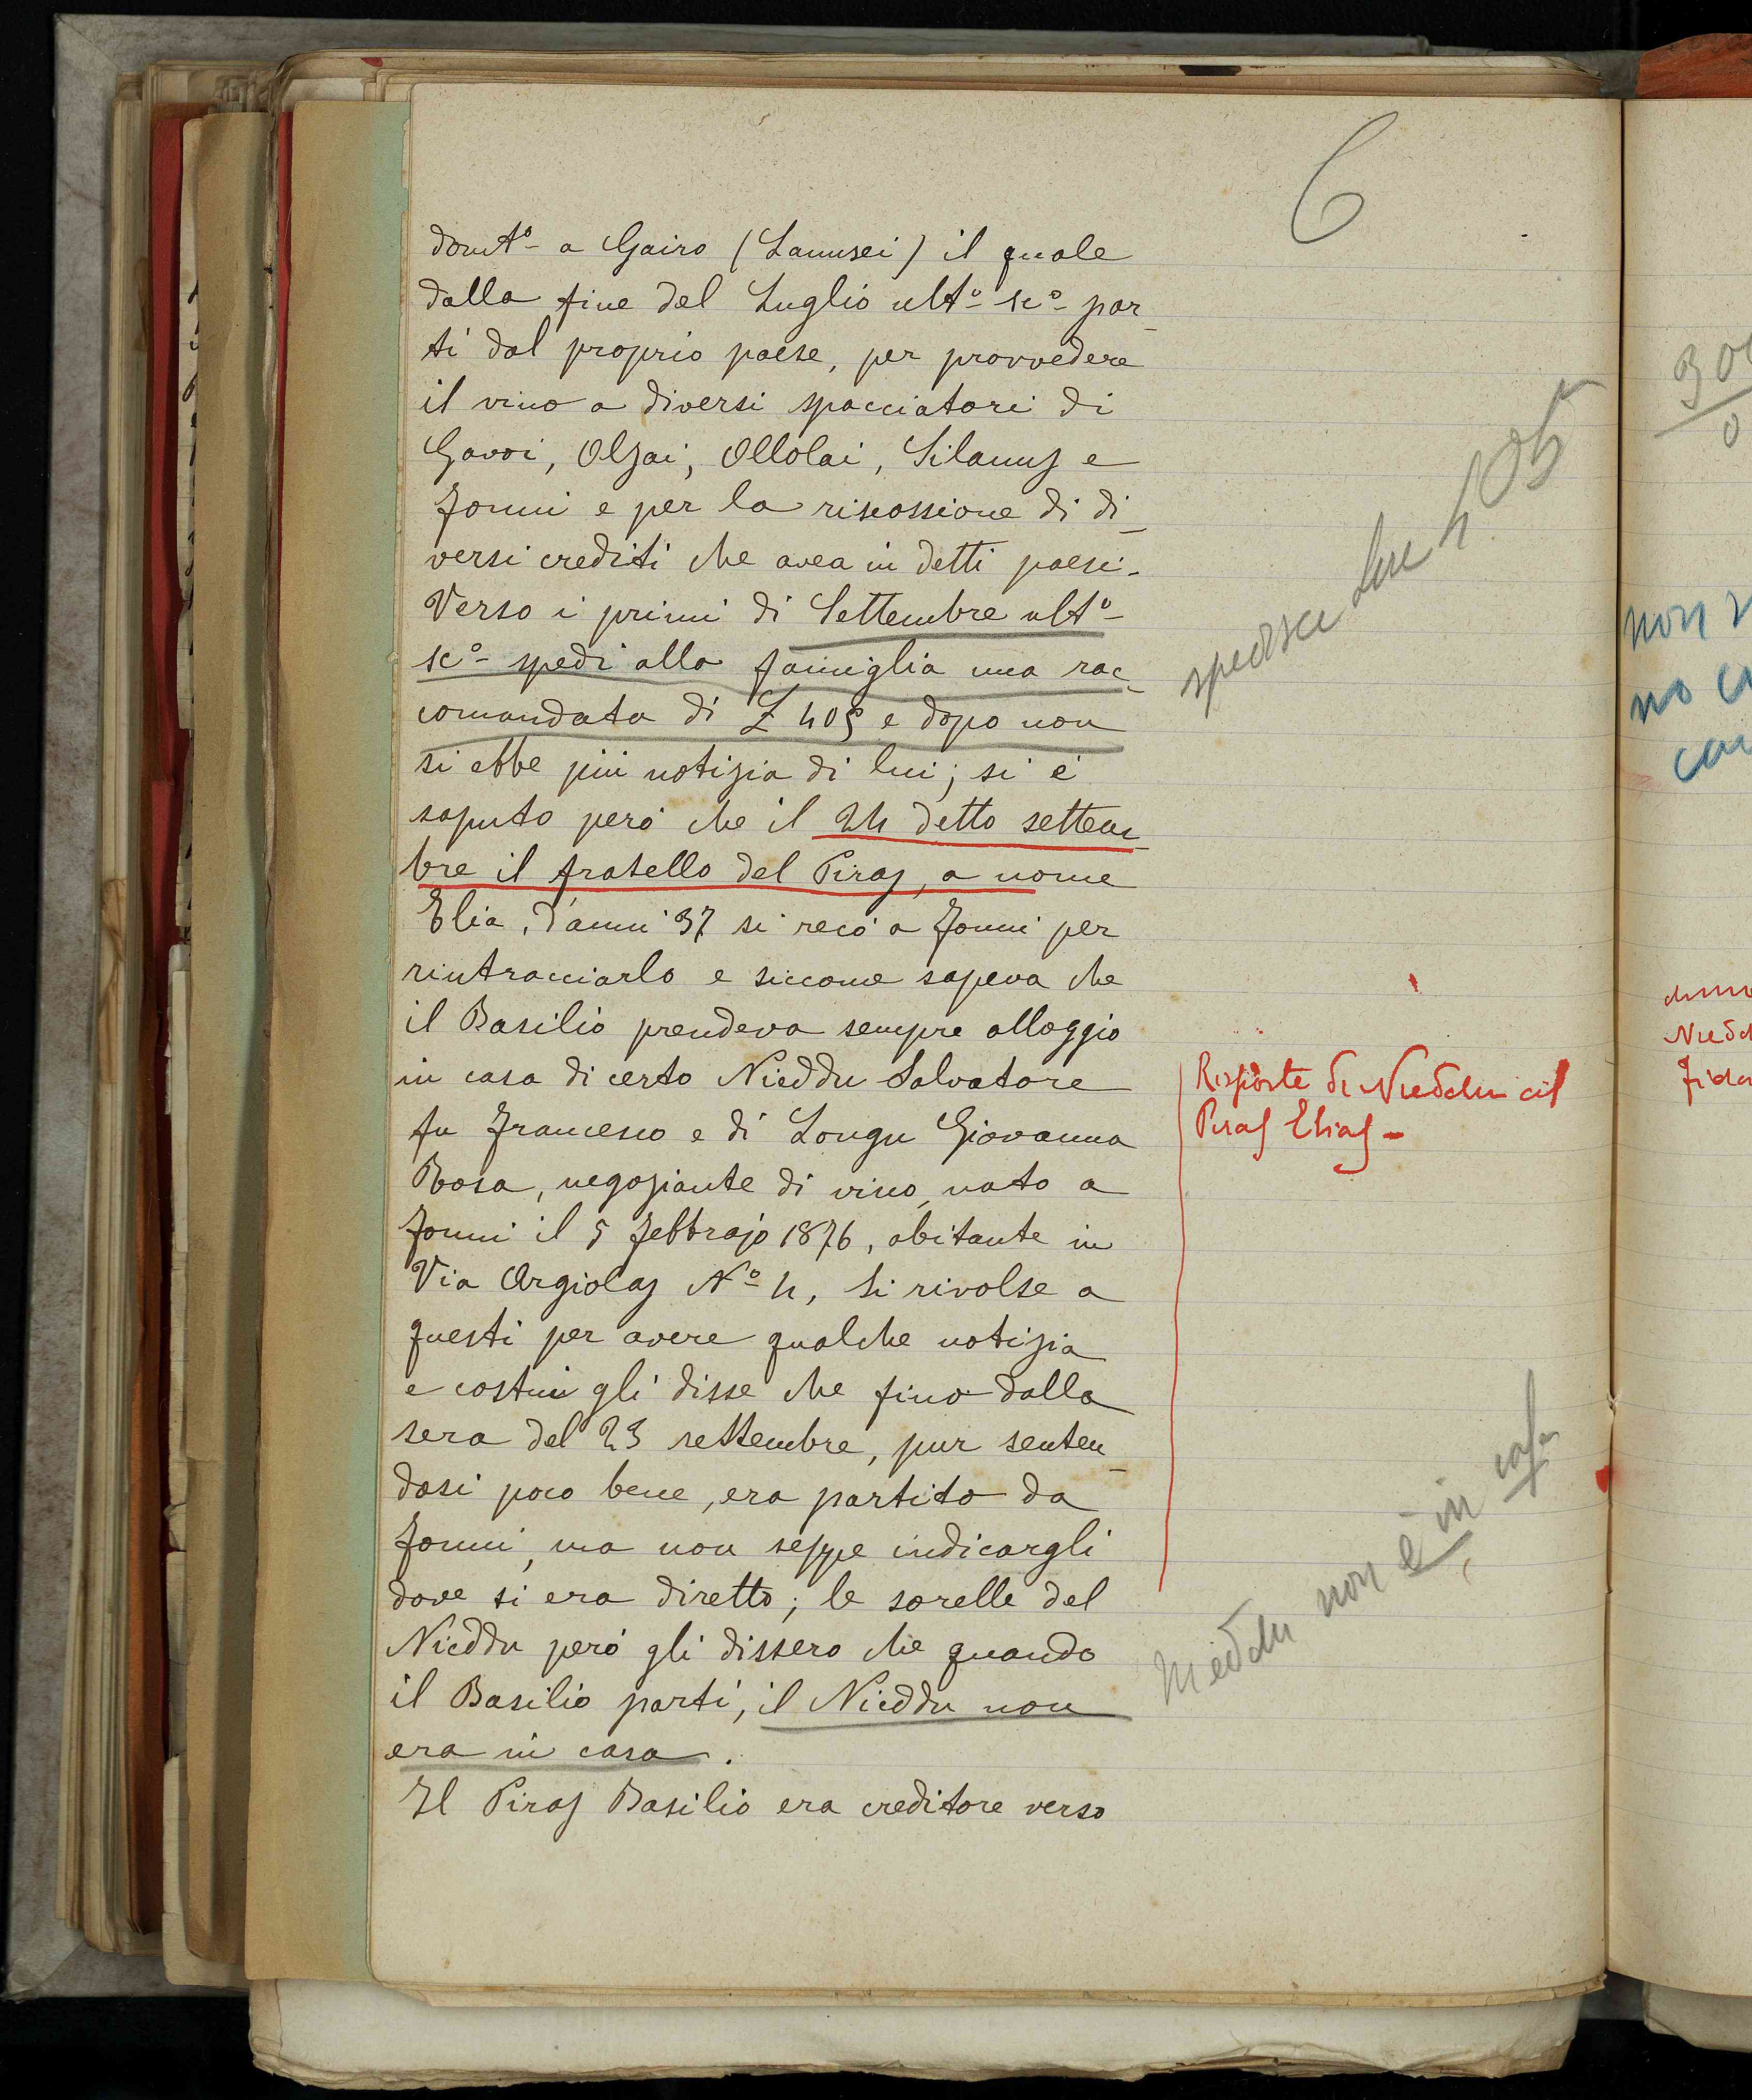 6
domto- a Gairo (Lanusei) il quale
dalla fine del Luglio ulto- sco- par_
ti dal proprio paese, per provvedere
il vino a diversi spacciatori di
Gavoi, Olzai, Ollolai, Silanus e
Fonni e per la riscossione di di_
versi crediti che avea in detti paesi.
Verso i primi di Settembre ulto-
sco- spedì alla famiglia una rac_
comandata di £ 405 e dopo non
si ebbe più notizia di lui; si è
saputo però che il 24 detto settem_
bre il fratello del Piras, a nome
Elia, d'anni 37 si recò a Fonni per
rintracciarlo e siccome sapeva che
il Basilio prendeva sempre alloggio
in casa di certo Nieddu Salvatore
fu Francesco e di Longu Giovanna
Rosa, negoziante di vino, nato a
Fonni il 5 Febbrajo 1876, abitante in
Via Argiolas No- 4, si rivolse a
questi per avere qualche notizia
e costui gli disse che fino dalla
sera del 23 settembre, pur senten_
dosi poco bene, era partito da
Fonni, ma non seppe indicargli
dove si era diretto; le sorelle del
Nieddu però gli dissero che quando
il Basilio partì, il Nieddu non
era in casa.
Il Piras Basilio era creditore verso
spedisce Lire 405
Risposte di Nieddu al
Piras Elias -
Nieddu non è in casa
30
0
non
no
Niedd